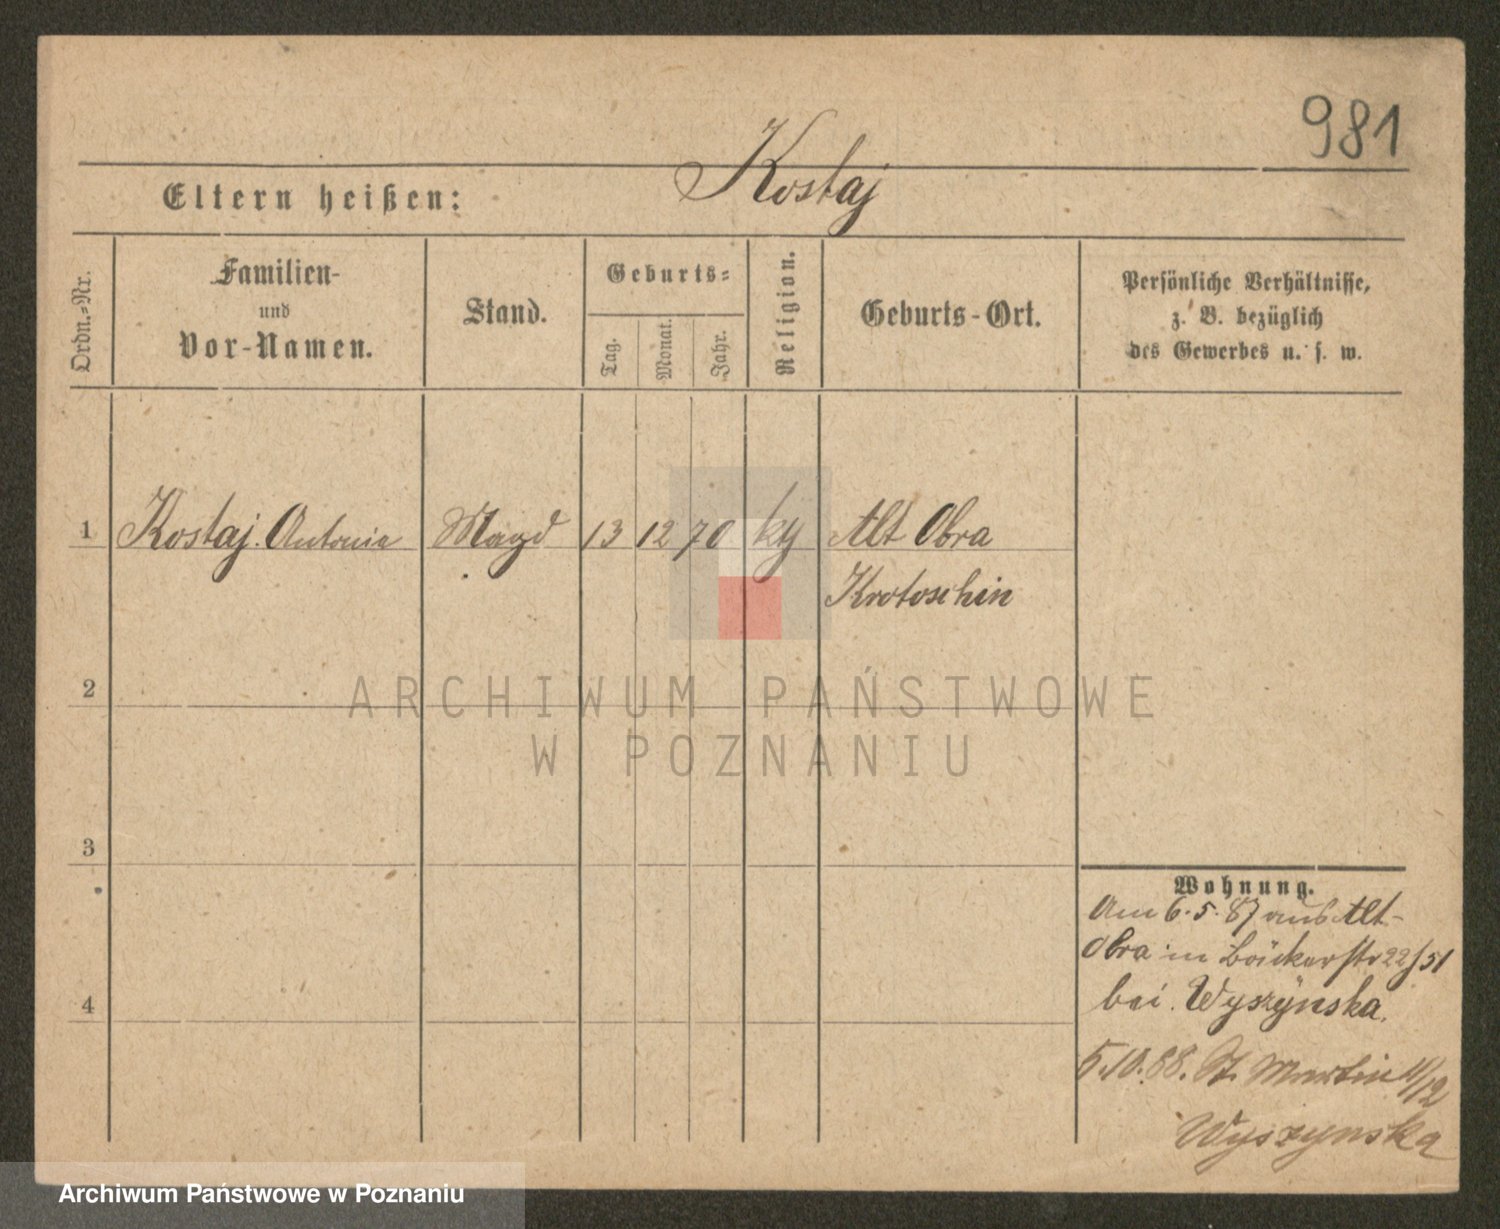 981
Kostaj
Eltern heißen:
Ordn.-Nr.
Familien-
und
Vor-Namen.
Stand.
Geburts-
Tag.
Monat.
Jahr.
Religion.
Geburts-Ort.
Persönliche Verhältnisse,
z. B. bezüglich
des Gewerbes u. s. w.
1 Kostaj. Antonie Magd 13 12 70 Alt Obra
Krotoschin
2
ARCHIWUM PAŃSTWOWE
W POZNANIU
3
4
Wohnung.
Am 6.5.87 aus Alt-
Obra in Bäckerstr 22/51
bei. Wyszynska.
5.10.88. St. Martin 11/12
Wyszynska
Archiwum Państwowe w Poznaniu